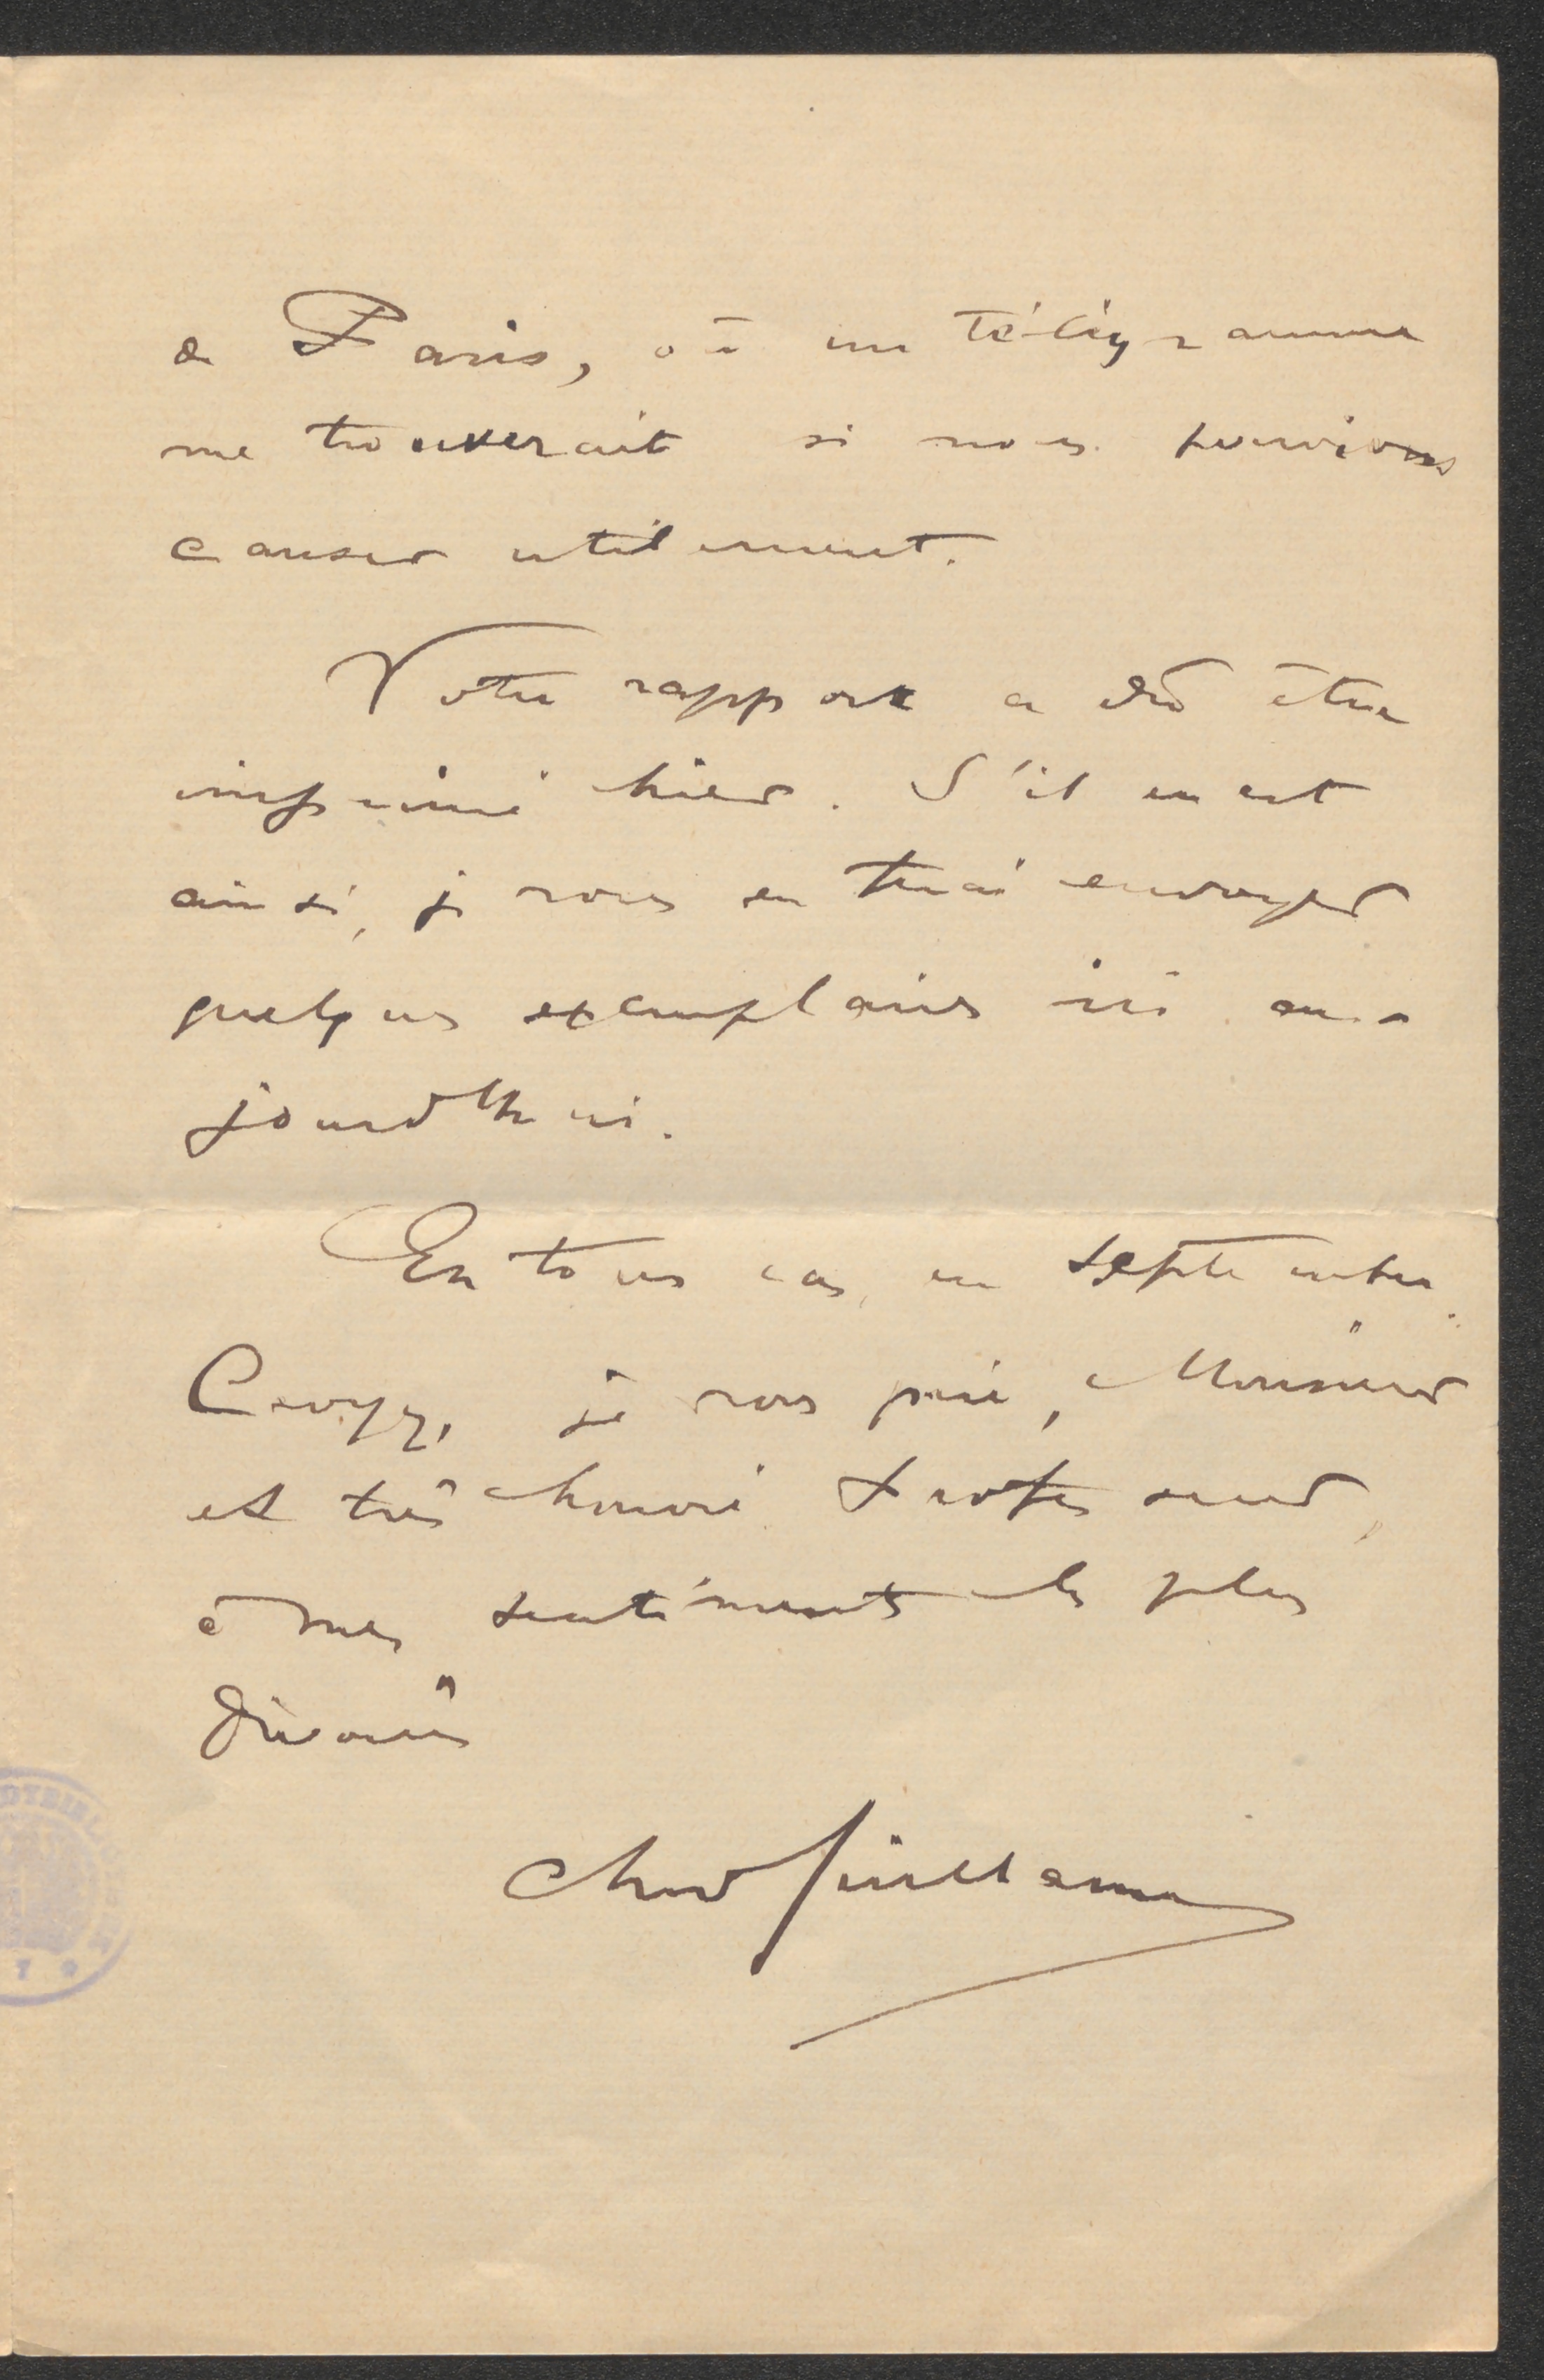 de Paris, où un télégramme
me trouverait si nous pouvions
causer utilement.
Votre rapport a dû être
imprimé hier. S'il en est
ainsi, je vous en ferai envoyer
quelques exemplaires ici au-
jourd'hui.
En tous cas, en septembre.
Croyez, je vous prie, Monsieur
et très honoré Professeur,
à mes sentiments les plus
dévoués
Ch Ed Guillaume